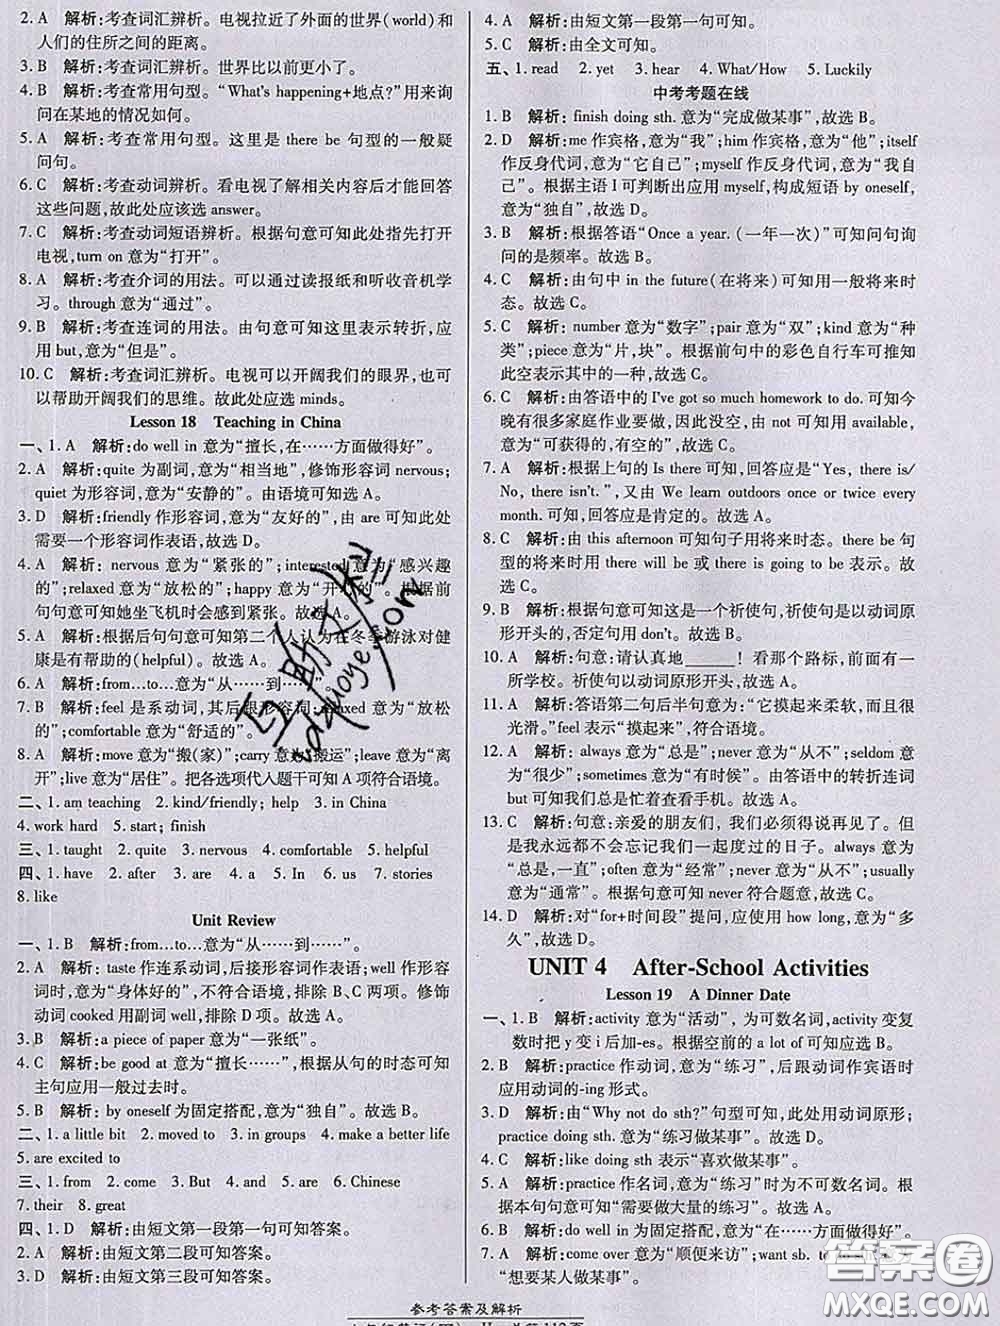 2. A　解析:考查词汇辨析。电视拉近了外面的世界(world)和
人们的住所之间的距离。
3. B　解析:考查词汇辨析。世界比以前更小了。
4. B　解析:考查常用句型。“What's happening+地点?”用来询
问在某地的情况如何。
5. A　解析:考查常用句型。这里是 there be 句型的一般疑
问句。
6. C　解析:考查动词辨析。看电视了解相关内容后才能回答
这些问题,故此处应该选 answer。
7. C　解析:考查动词短语辨析。根据句意可知此处指先打开
电视,turn on 意为“打开”。
8. A　解析:考查介词的用法。可以通过读报纸和听收音机学
习。through 意为“通过”。
9. B　解析:考查连词的用法。由句意可知这里表示转折,应
用 but,意为“但是”。
10. C　解析:考查词汇辨析。电视可以开阔我们的眼界,也可
以帮助开阔我们的思维。故此处应选 minds。
Lesson 18　Teaching in China
一、1. A　解析:do well in 意为“擅长,在……方面做得好”。
2. A　解析:quite 为副词,意为“相当地”,修饰形容词 nervous;
quiet 为形容词,意为“安静的”。由语境可知选 A。
3. D　解析:friendly 作形容词,意为“友好的”,由 are 可知此处
需要一个形容词作表语,故选 D。
4. A　解析: nervous 意为“紧张的”;interested 意为“感兴趣
的”;relaxed 意为“放松的”;happy 意为“开心的”。根据前
句句意可知她坐飞机时会感到紧张。故选 A。
5. A　解析:根据后句句意可知第二个人认为在冬季游泳对健
康是有帮助的(helpful)。故选 A。
6. A　解析:from…to…意为“从……到……”。
7. B　解析:feel 是系动词,其后跟形容词;relaxed 意为“放松
的”;comfortable 意为“舒适的”。故选 B。
8. A　解析:move 意为“搬(家)”;carry 意为“搬运”;leave 意为“离
开”;live 意为“居住”。把各选项代入题干可知 A 项符合语境。
二、1. am teaching　2. kind/friendly; help　3. in China
4. work hard　5. start; finish
三、1. taught　2. quite　3. nervous　4. comfortable　5. helpful
四、1. have　2. after　3. are　4. a　5. In　6. us　7. stories
8. like
Unit Review
一、1. B　解析:from…to…意为“从……到……”。
2. A　解析: taste 作连系动词,后接形容词作表语;well 作形容
词时,意为“身体好的”,不符合语境,排除 B、C 两项。修饰
动词 cooked 用副词 well,排除 D 项。故选 A。
3. B　解析:a piece of paper 意为“一张纸”。
4. C　解析:be good at 意为“擅长……”,根据从句的时态可知
主句应用一般过去时。
5. B　解析: by oneself 为固定搭配,意为“独自”。故选 B。
二、1. a little bit　2. moved to　3. in groups　4. make a better life
5. are excited to
三、1. from　2. come　3. But　4. and　5. are　6. Chinese
7. their　8. great
四、1. D　解析:由短文第一段第一句可知答案。
2. A　解析:由短文第二段可知答案。
3. D　解析:由短文第三段可知答案。
4. A　解析:由短文第一段第一句可知。
5. C　解析:由全文可知。
五、1. read　2. yet　3. hear　4. What/How　5. Luckily
中考考题在线
1. B　解析: finish doing sth. 意为“完成做某事”,故选 B。
2. D　解析:me 作宾格,意为“我”;him 作宾格,意为“他”;itself
作反身代词,意为“它自己”;myself 作反身代词,意为“我自
己”。根据主语 I 可判断出应用 myself,构成短语 by oneself,
意为“独自”,故选 D。
3. B　解析:根据答语“Once a year. (一年一次)”可知问句询
问的是频率。故选 B。
4. C　解析:由句中 in the future(在将来)可知用一般将来时
态。故选 C。
5. C　解析: number 意为“数字”;pair 意为“双”;kind 意为“种
类”;piece 意为“片,块”。根据前句中的彩色自行车可推知
此空表示其中的一种,故选 C。
6. C　解析:由答语中的 I've got so much homework to do. 可知今
晚有很多家庭作业要做,因此没空,由 not 可知用 available,
意为“可获得的,有空的”,故选 C。
7. A　解析:根据上句的 Is there 可知,回答应是“Yes, there is/
No, there isn't.”,又由 We learn outdoors once or twice every
month. 可知,回答应是肯定的。故选 A。
8. C　解析:由 this afternoon 可知句子用将来时态。there be 句
型的将来时构成为 there will be 或 there is going to be 表示。
故选 C。
9. B　解析:根据句意可知这是一个祈使句,祈使句是以动词原
形开头的,否定句用 don't。故选 B。
10. A　解析:句意:请认真地______！看那个路标,前面有一
所学校。祈使句以动词原形开头,故选 A。
11. A　解析:答语第二句后半句意为:“它摸起来柔软,而且很
光滑。”feel 表示“摸起来”,符合语境。
12. A　解析: always 意为“总是”;never 意为“从不”;seldom 意
为“很少”;sometimes 意为“有时候”。由答语中的转折连词
but 可知我们总是忙着查看手机。故选 A。
13. C　解析:句意:亲爱的朋友们, 我们必须得说再见了。但
是我永远都不会忘记我们一起度过的日子。always 意为
“总是,一直”;often 意为“经常”;never 意为“从不”;usually
意为“通常”。根据句意可知 never 符合题意,故选 C。
14. D　解析:对“for+时间段”提问,应使用 how long,意为“多
久”,故选 D。
UNIT 4　After-School Activities
Lesson 19　A Dinner Date
一、1. B　解析:activity 意为“活动”, 为可数名词,activity 变复
数时把 y 变 i 后加-es。根据空前的 a lot of 可知应选 B。
2. B　解析:practice 作动词,意为“练习”,后跟动词作宾语时
应用动词的-ing 形式。
3. D　解析:由“Why not do sth?”句型可知,此处用动词原形;
practice doing sth. 意为“练习做某事”。故选 D。
4. C　解析:like doing sth 表示“喜欢做某事”。
5. A　解析:practice 作名词,意为“练习”时为不可数名词。根
据本句句意可知“需要做大量的练习”。故选 A。
6. B　解析:do well in 为固定搭配,意为“在……方面做得好”。
7. A　解析:come over 意为“顺便来访”;want sb. to do sth 意为
“想要某人做某事”。
参考答案及解析
互助文栏
答案圈
MXQE.COM